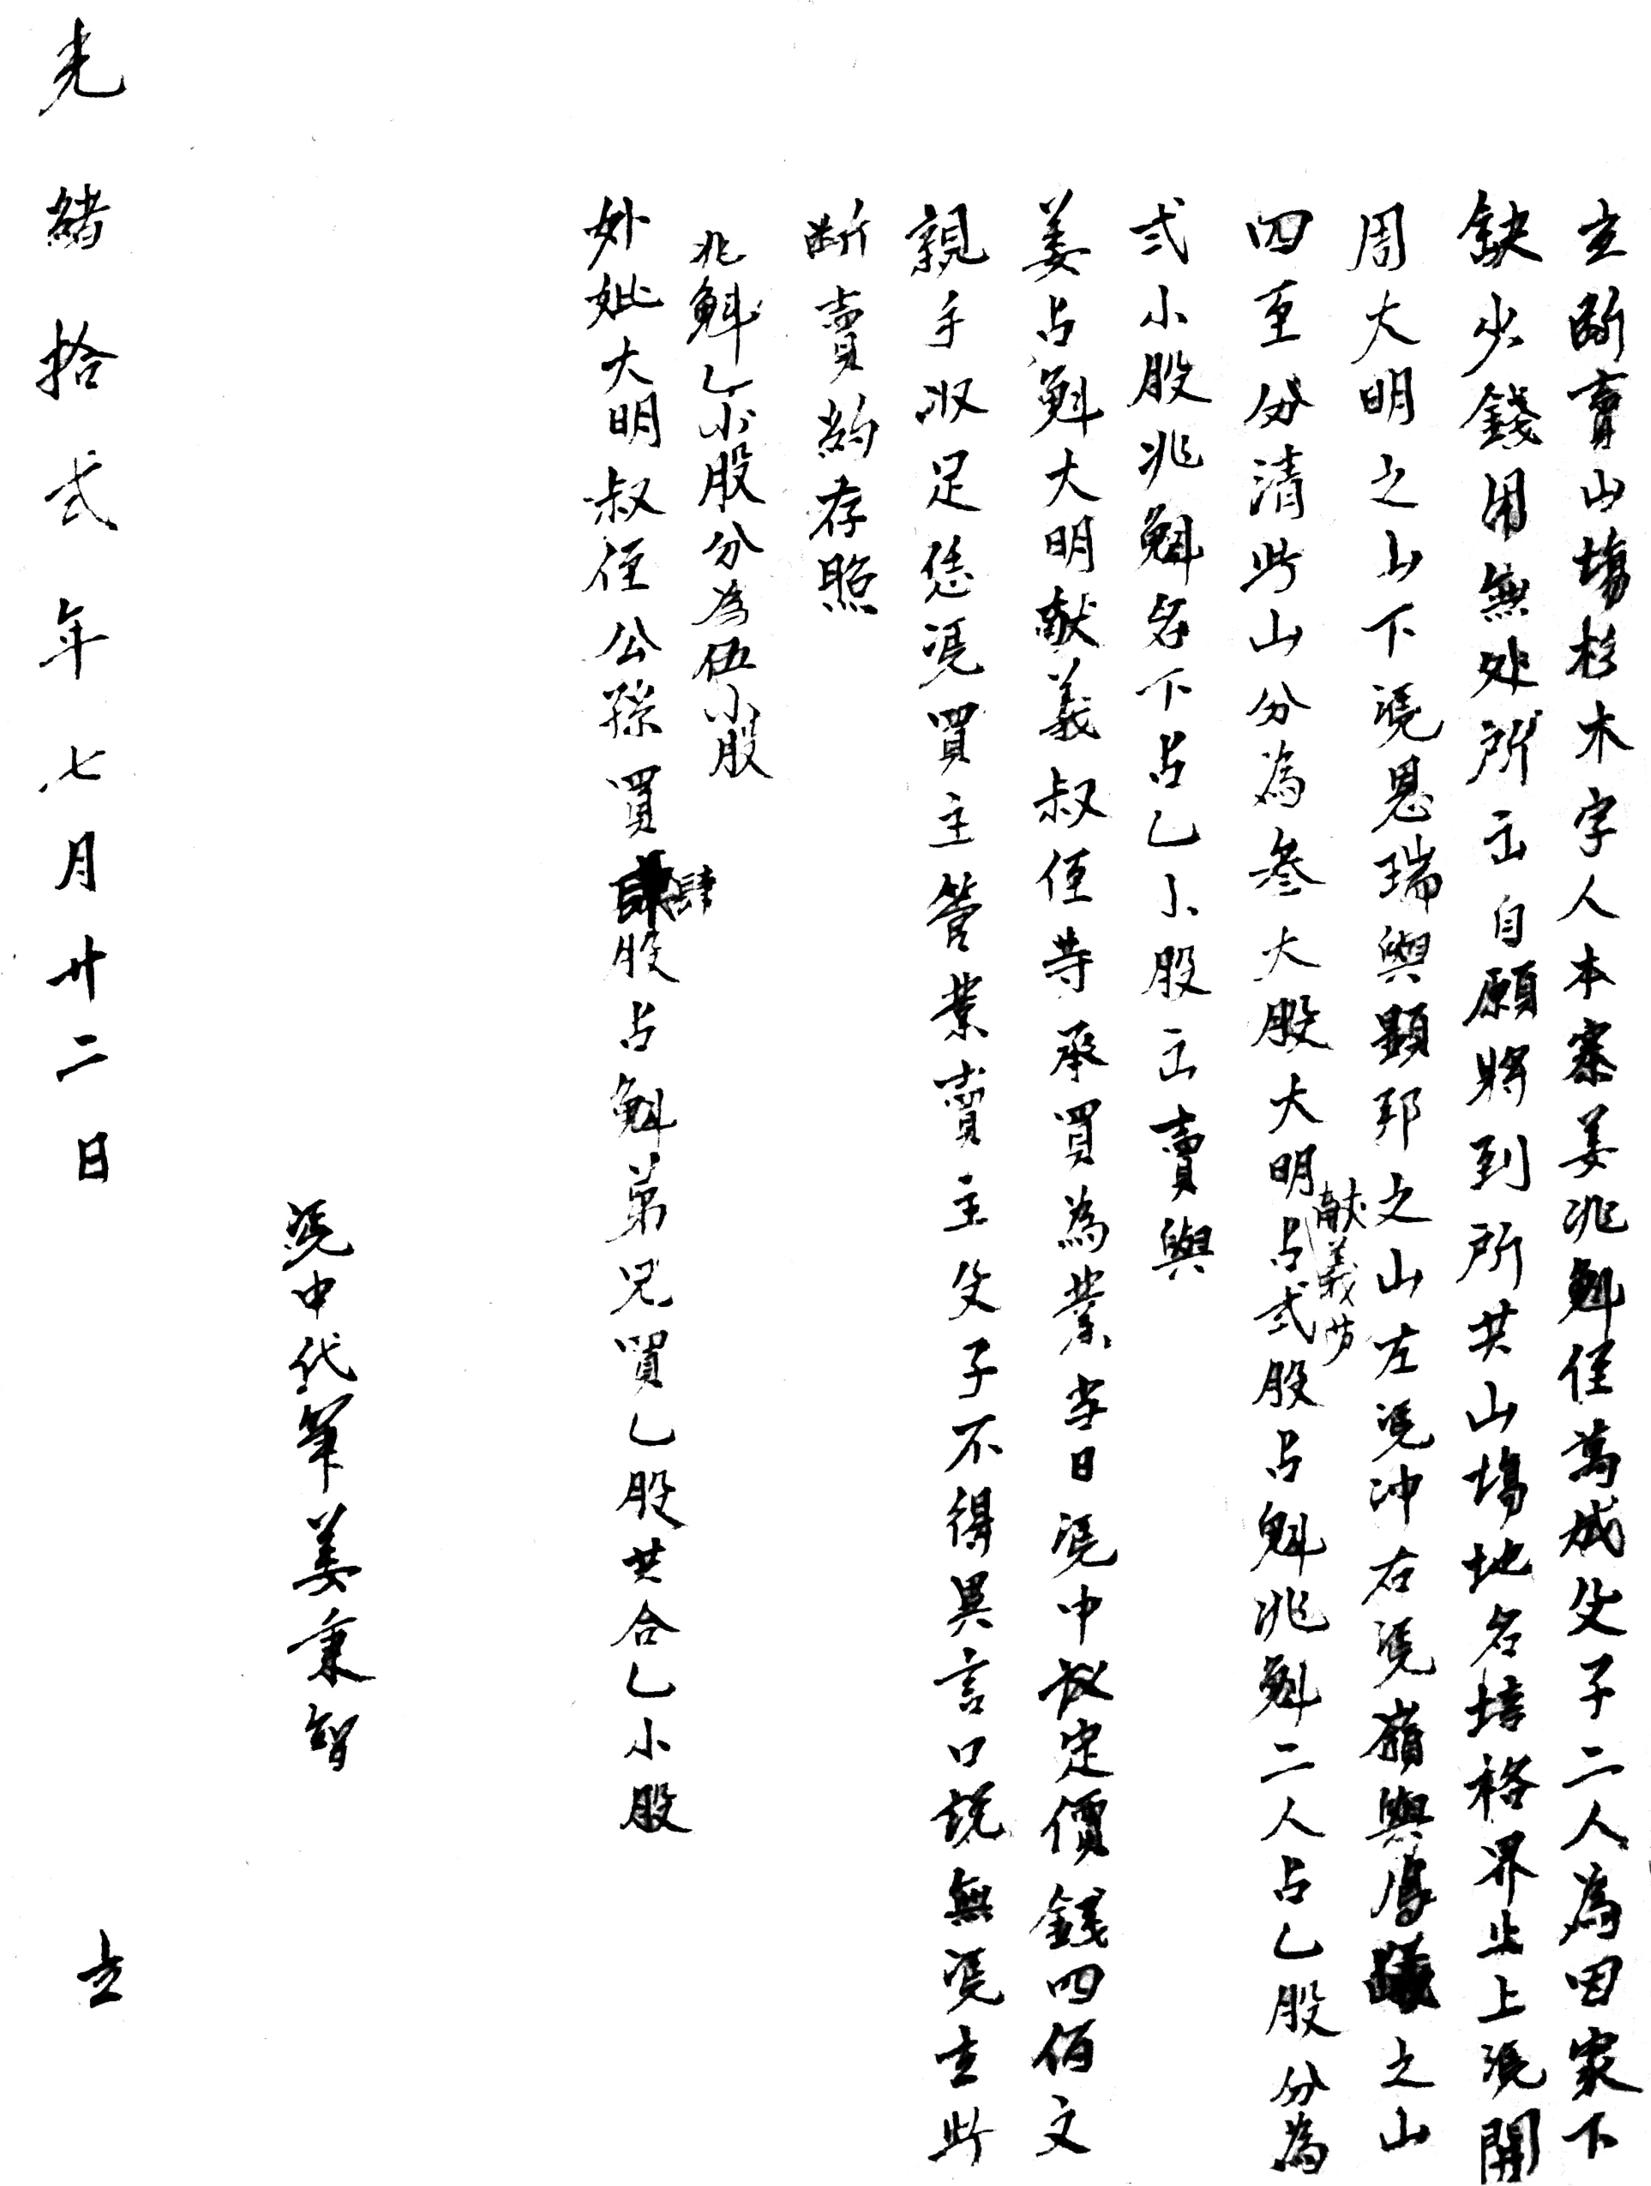 立斷賣山塲杉木字人本寨姜兆魁侄萬成父子二人為因家下
缺少錢用無处所出自願將到所共山塲地名培格界止上凴開
周大明之山下凴恩瑞與顯邦之山左凴冲右凴嶺與之山
四至分清此山分為叁大股大明献義等占弍股占魁兆魁二人占乙股分為
弍小股兆魁名下占乙小股出賣與
姜占魁大明献義叔侄等承買為業當日凴中议定價錢四佰文
親手收足恁凴買主管業賣主父子不得異言口説無凴立此
斷賣約存照
兆魁乙小股分為伍小股
外妣大明叔侄公孫買肆股占魁弟兄買乙股共合乙小股
凴中代筆姜秉智
光緒拾弍年七月廿二日 立